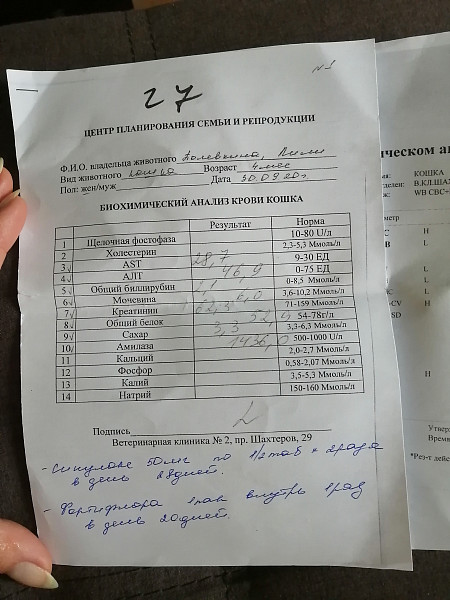 №1
27
ЦЕНТР ПЛАНИРОВАНИЯ СЕМЬИ И РЕПРОДУКЦИИ
Ф.И.О. владельца животного
Вид животного кошка Возраст 4 мес
Пол: жен/муж Дата 30.09.20г.
БИОХИМИЧЕСКИЙ АНАЛИЗ КРОВИ КОШКА
Результат Норма
1 Щелочная фостофаза 10-80 U/л
2 Холестерин 2,3-5,3 Ммоль/л
3 √ AST 28,7 9-30 ЕД
4 √ АЛТ 46,9 0-75 ЕД
5 √ Общий биллирубин 2,1 0-8,5 Ммоль/л
6 √ Мочевина 6,0 3,6-10,2 Ммоль/л
7 √ Креатинин 71-159 Ммоль/л
8 √ Общий белок 52,4 54-78г/л
9 √ Сахар 3,3 3,3-6,3 Ммоль/л
10 √ Амилаза 1436,0 500-1000 U/л
11 Кальций 2,0-2,7 Ммоль/л
12 Фосфор 0,58-2,07 Ммоль/л
13 Калий 3,5-5,3 Ммоль/л
14 Натрий 150-160 Ммоль/л
Подпись
Ветеринарная клиника № 2, пр. Шахтеров, 29
- Синулокс 50мг по 1/2 таб х 2 раза
в день 28дней.
- Фортифлора 1 пак внутрь 1 раз
в день 20дней.
ическом ан
КОШКА
делен: В.КЛ.ШАХ
WB CBC+
метр
H
L
L
L
L
CV H
SD
H
Утвер
Время
*Рез-т дейс